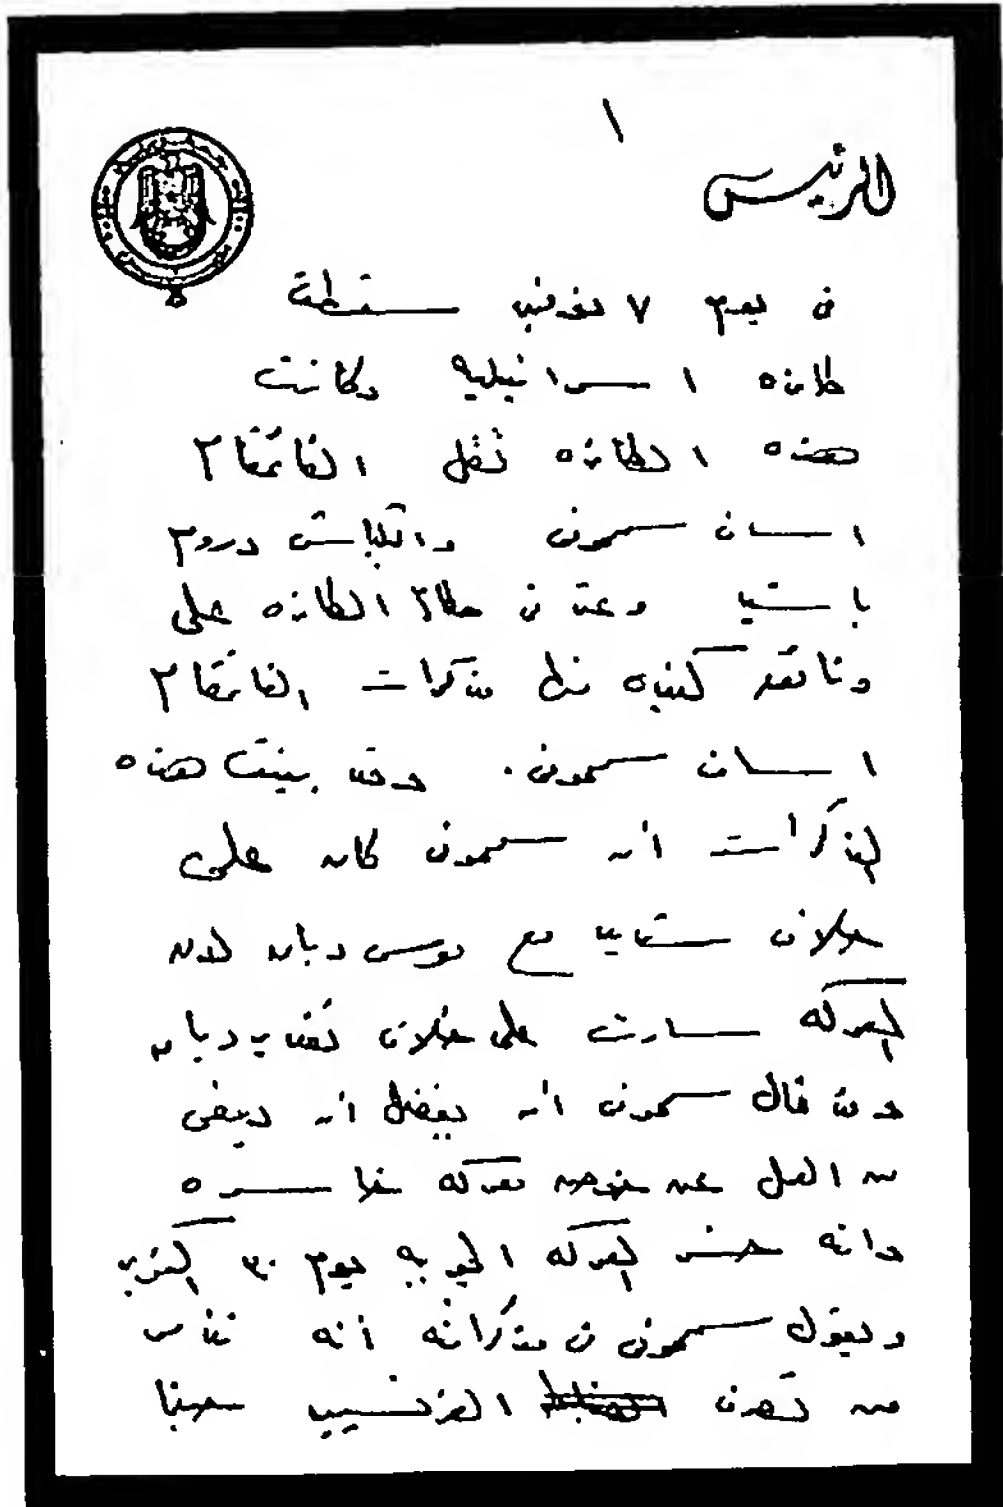 ١
الرئيس
فى يوم ٧ نوفمبر سقطت
طائره اسرائيليه وكانت
هذه الطائره تنقل القائمقام
اساف سمحونى والبكباشى
وعثر فى حطام الطائره على
وثائق كثيره منها مذكرات القائمقام
اساف سمحونى . وقد بينت هذه
المذكرات ان سمحونى كان على
خلاف مع موسى ديان لان
المعركه سارت على خلاف ديان
وقد قال سمحونى انه يفضل ان يعفى
من العمل عن خوض معركه خاسره
وانه خسر المعركه يوم ٣٠ اكتوبر
ويقول سمحونى فى مذكراته انه
من تصرف الفرنسيين